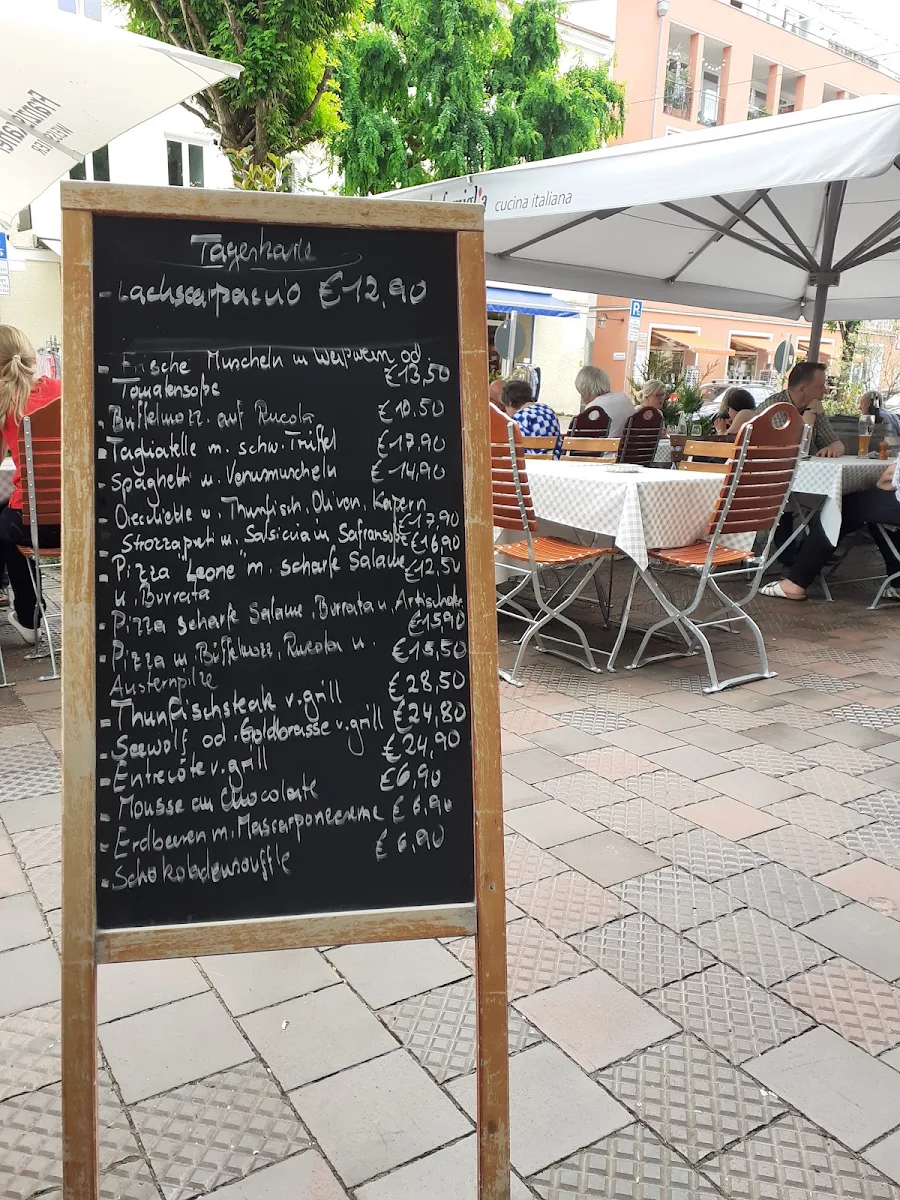 cucina italiana
Tageskarte
- Lachscarpaccio €12,90
- Frische Muscheln in Weißwein od.
Tomatensoße €13,50
- Büffelmozz. auf Rucola €10.50
- Tagliatelle m. schw. Trüffel €17,90
- Spaghetti u. Venusmuscheln €14,90
- Orecchiette u. Thunfisch, Oliven, Kapern €17,90
- Strozzapreti m. Salsiccia in Safransoße €16,90
- Pizza "Leone" m. scharfe Salame €12,50
u. Burrata
- Pizza scharfe Salame, Burrata u. Artischoke €15,90
- Pizza m Büffelmozz, Rucola u. €15,50
Austernpilze
- Thunfischsteak v. grill €28,50
- Seewolf od. Goldbrasse v. grill €24,80
- Entrecôte v. grill €24,90
- Mousse au Chocolate €6,90
- Erdbeeren m. Mascarponecreme €6,90
- Schokoladensouffle €6,90